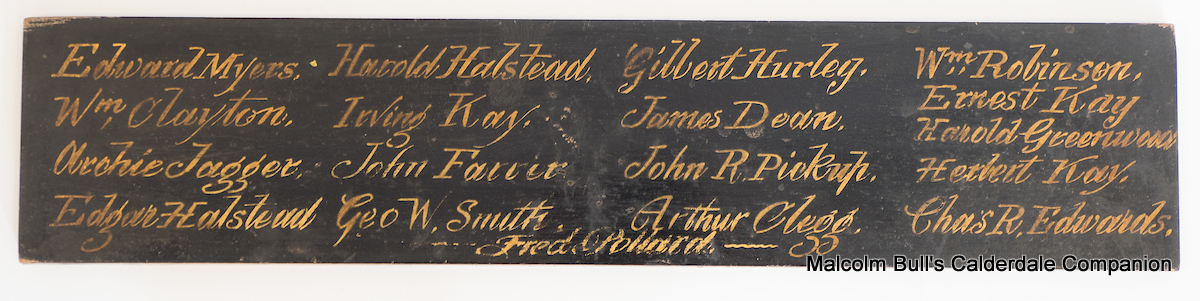 Edward Myers. Harold Halstead. Gilbert Hurley. Wm. Robinson.
Wm. Clayton. Irving Kay. James Dean. Ernest Kay
Harold Greenwood
Archie Jagger. John Farrer John R. Pickup. Herbert Kay.
Edgar Halstead Geo W. Smith. Arthur Clegg. Chas R. Edwards.
Fred Pollard.
Malcolm Bull's Calderdale Companion